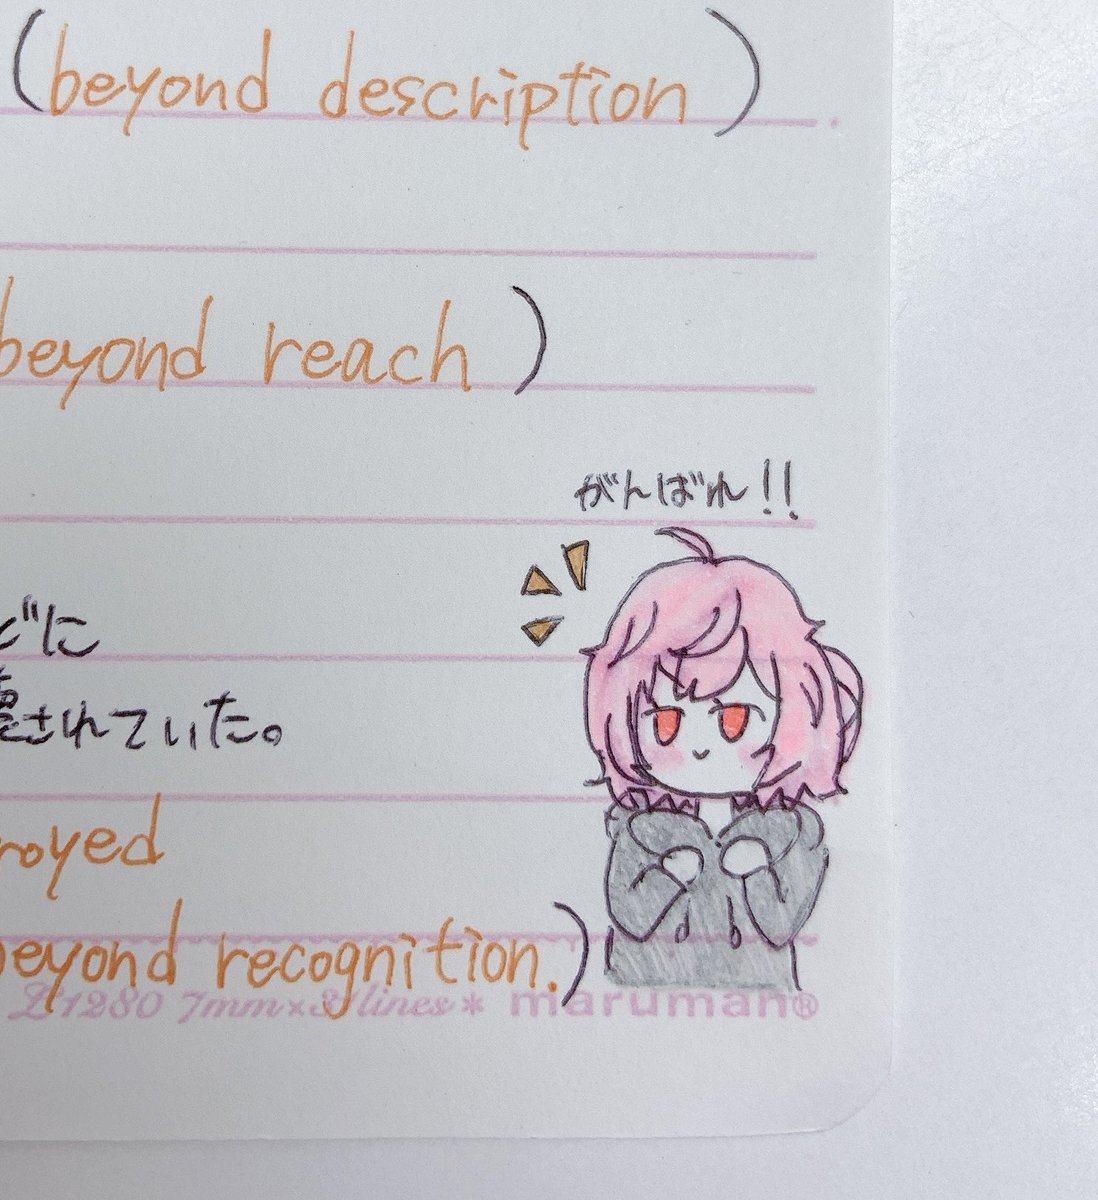 (beyond description).
beyond reach)
がんばれ!!
どに
されていた。
royed
beyond recognition.)
L1280 7mm×31lines* maruman®